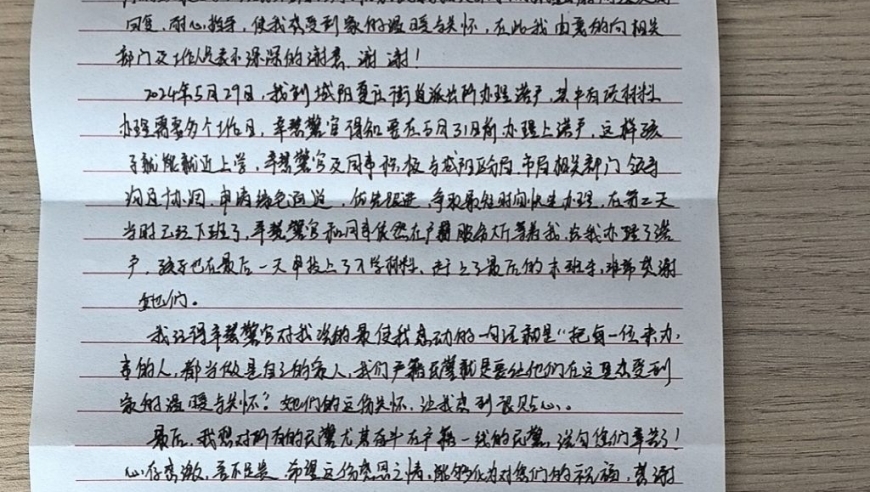 回复，耐心指导，使我感受到家的温暖与关怀，在此我由衷的向相关
部门及工作人员表示深深的谢意，谢谢！
2024年5月29日，我到城阳夏庄街道派出所办理落户，其中有项材料
办理需要多个工作日，辛慧警官得知要在5月31日前办理上落户，这样孩
子就能就近上学，辛慧警官及同事积极与城阳政府、市局相关部门领导
沟通协调，申请绿色通道，优先跟进，争取最短时间快些办理，在第二天
当时已经下班了，辛慧警官和同事依然在户籍服务大厅等着我，给我办理了落
户，孩子也在最后一天审核上了入学材料，赶上了最后的末班车，非常感谢
她们。
我记得辛慧警官对我说的最使我感动的一句话就是“把每一位来办
事的人，都当做是自己的家人，我们户籍民警就是要让他们在这里感受到
家的温暖与关怀？她们的这份关怀，让我感到很贴心。
最后，我想对所有的民警尤其奋斗在户籍一线的民警，说句您们辛苦了！
心存感激，言不足表，希望这份感恩之情，能够化为对您们的祝福，感谢